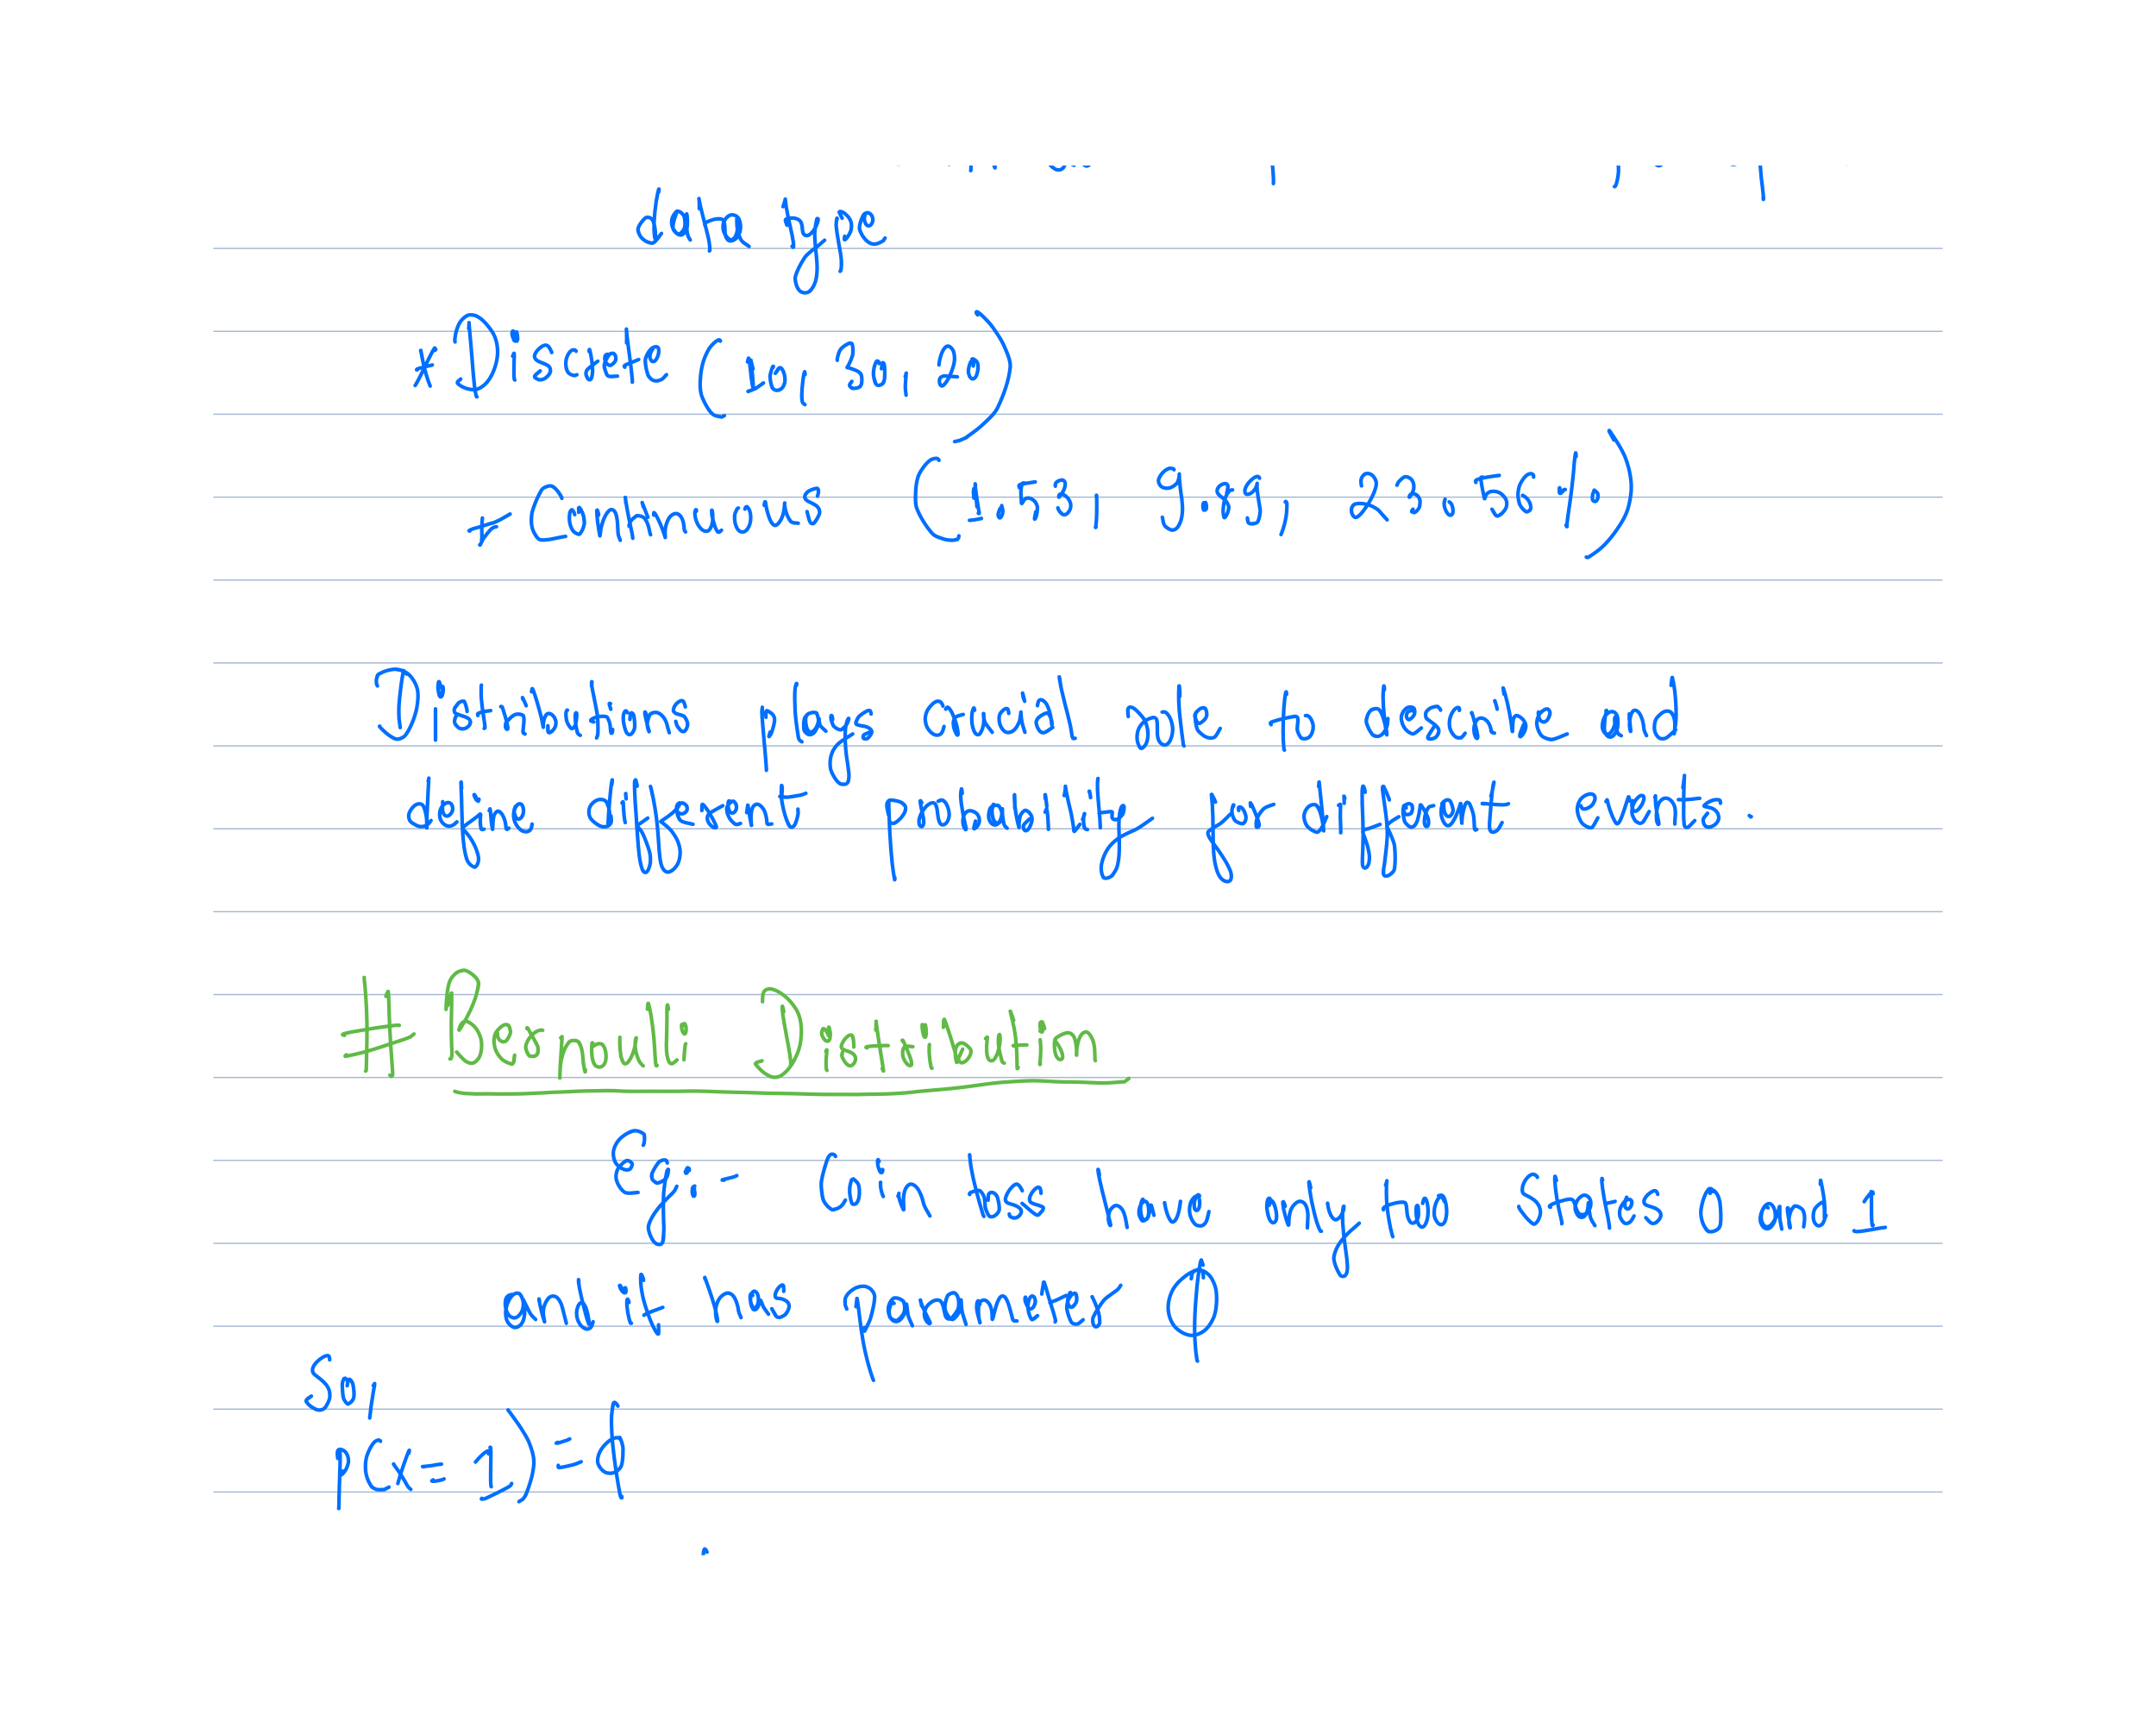 data type
* Discrete (10, 30, 20)
* Continuous (1.53, 9.88, 23.56...)
Distributions plays critical role to describe and
define different probability for different events.
# Bernoulli Distribution
Eg:- Coin toss have only two states 0 and 1
and it has parameter ϕ
So,
p(x = 1) = ϕ